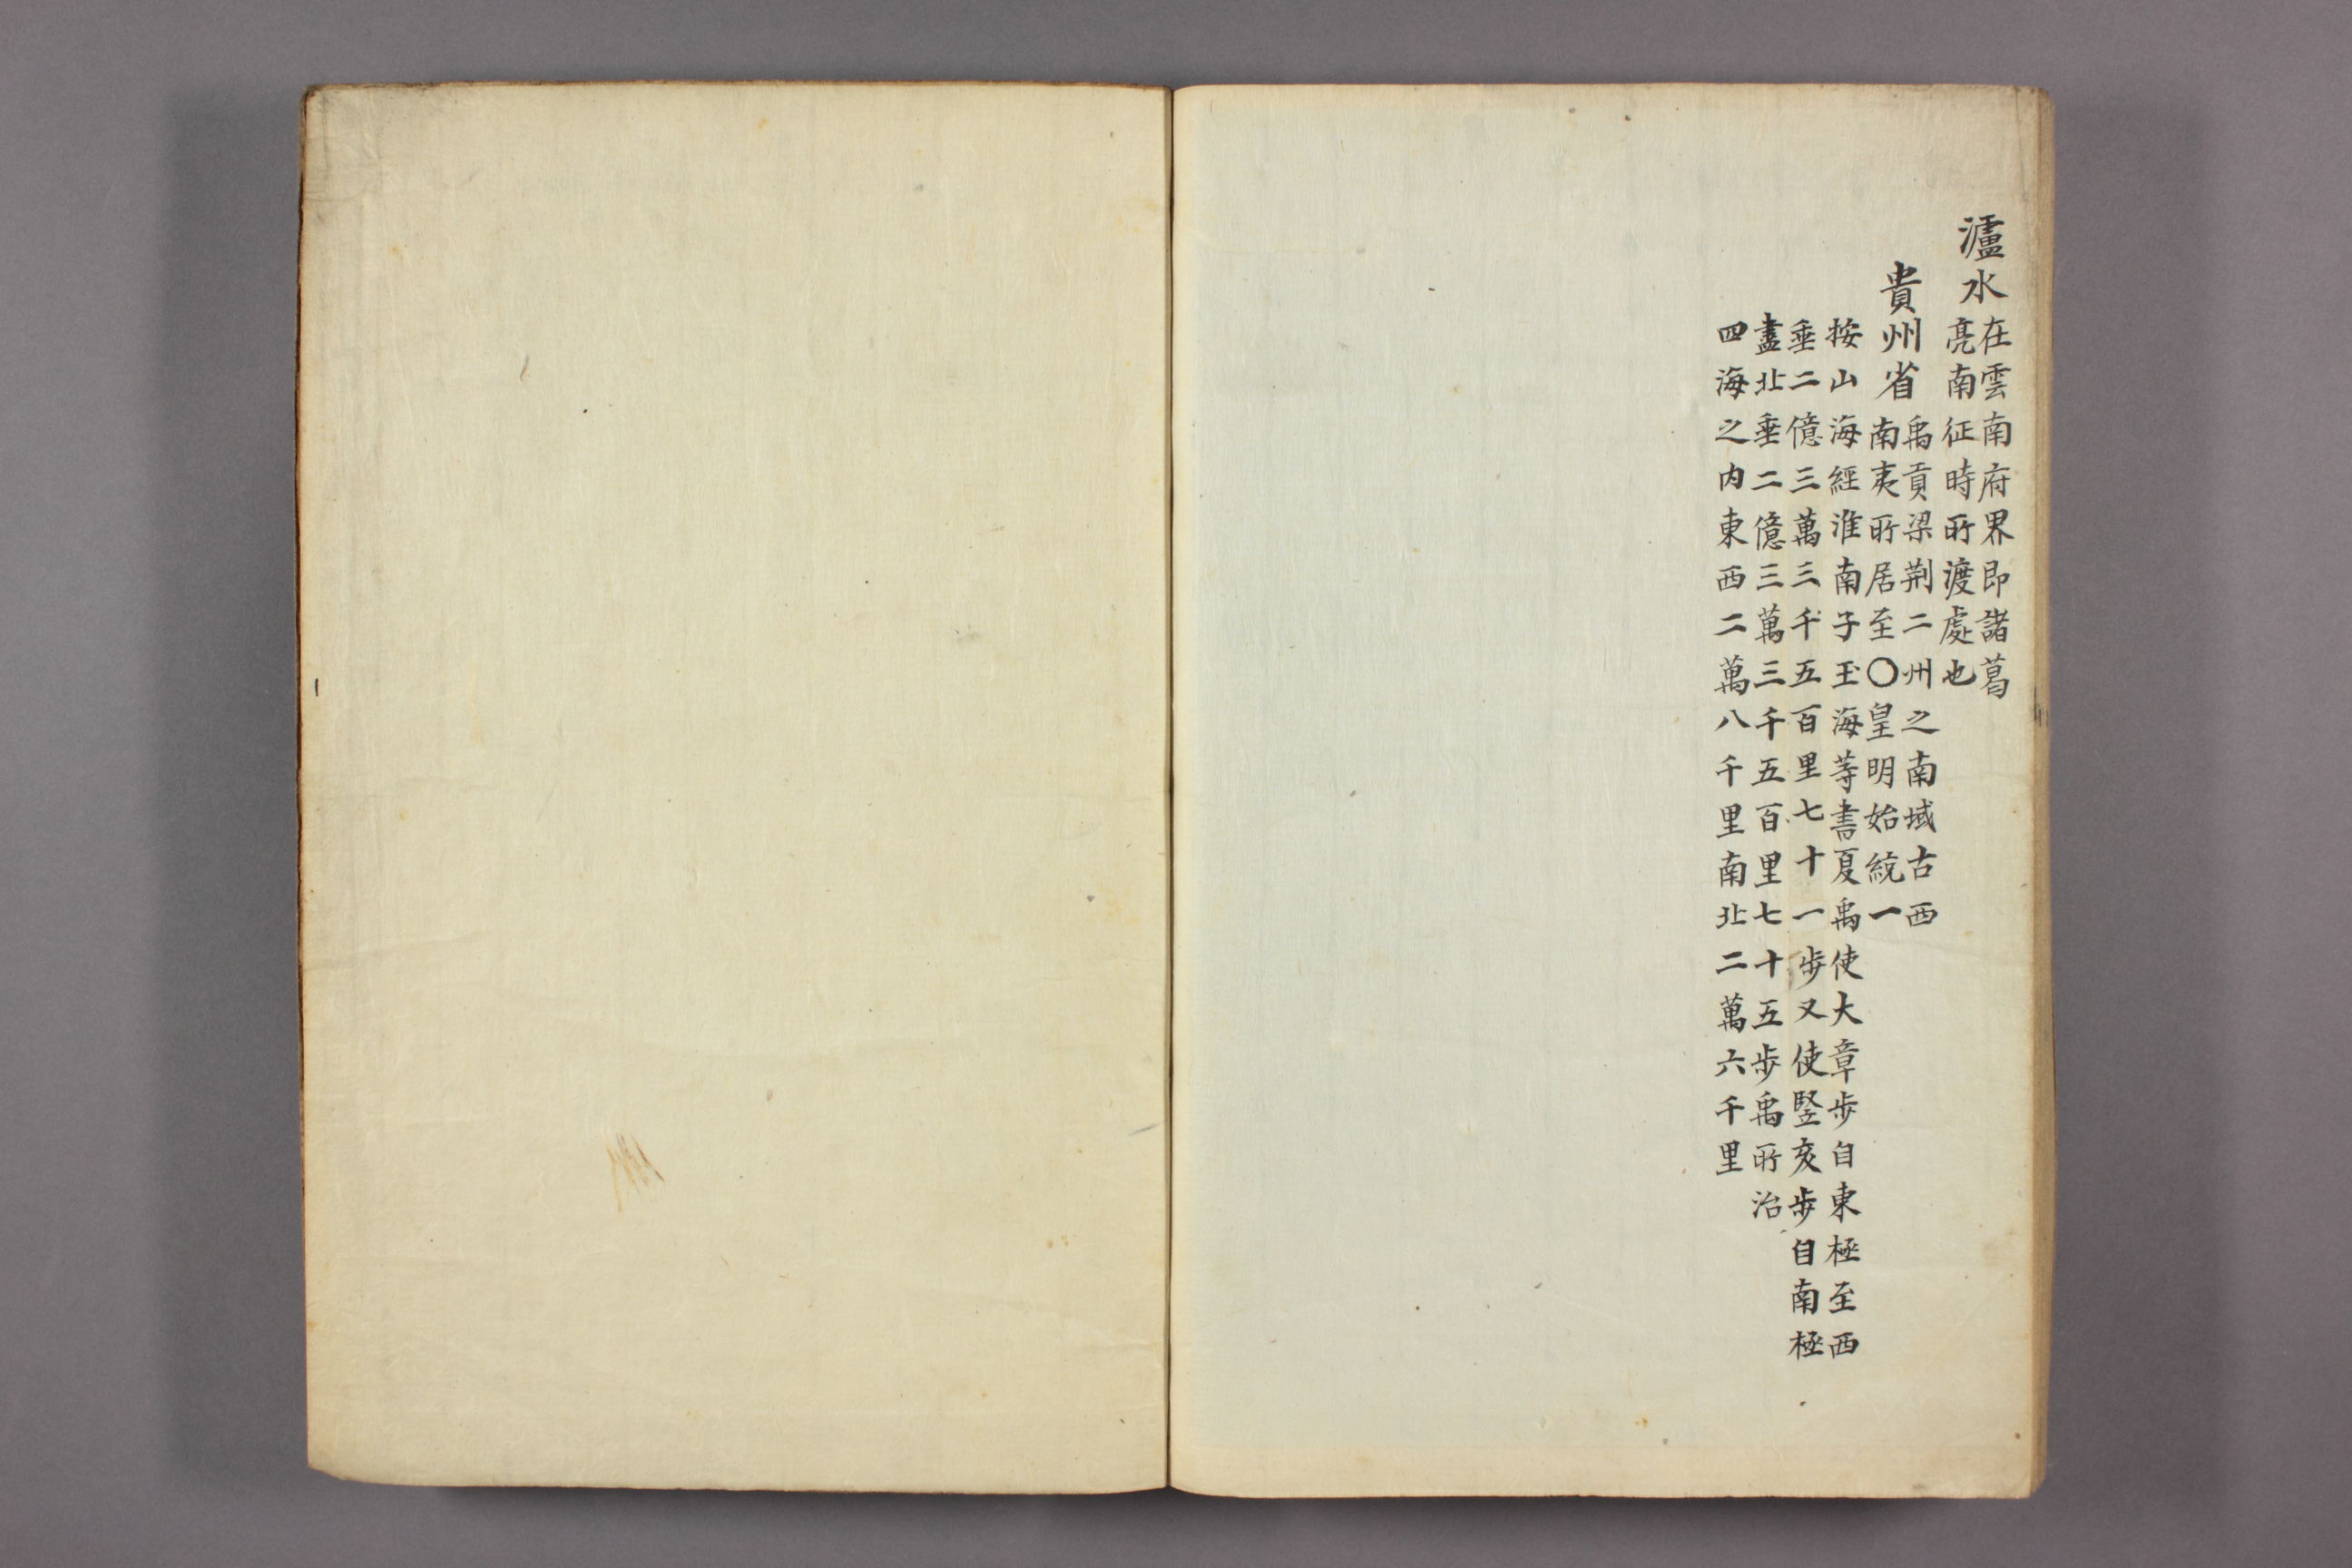 瀘水
在雲南府界即諸葛
亮南征時所渡處也
貴州省
禹貢梁荆二州之南域古西
南夷所居至〇皇明始統一
按山海經淮南子玉海等書夏禹使大章步自東極至西
垂二億三萬三千五百里七十一步又使竪亥步自南極
盡北垂二億三萬三千五百里七十五步禹所治
四海之内東西二萬八千里南北二萬六千里